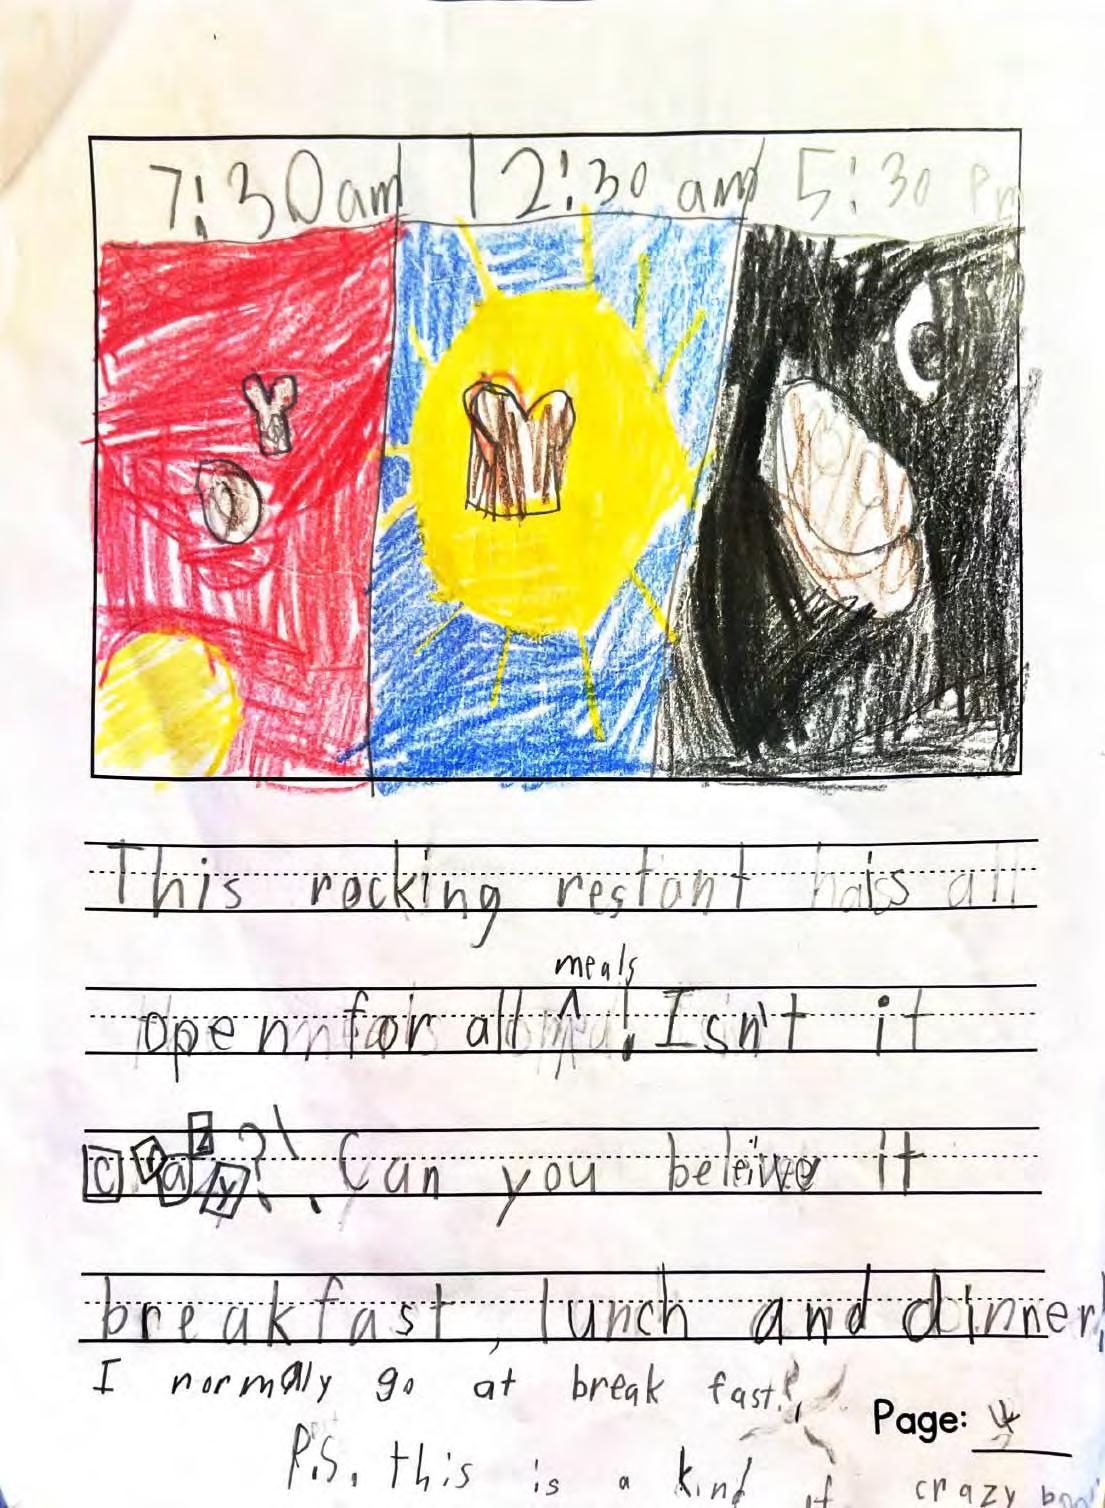 7:30 am 12:30 am 5:30 Pm
This rocking restant has all
meals
open for all ^ ! Isn't it
crazy?! Can you beleive it
breakfast, lunch and dinner!
I normally go at break fast!
Page: 4
P.S. this is a kind of crazy